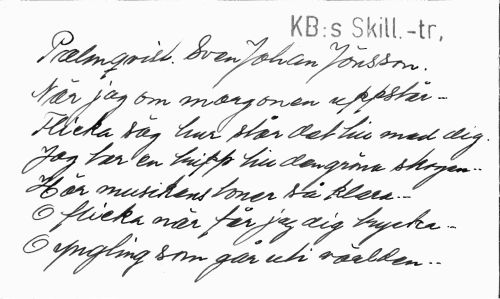 KB:s Skill.-tr,
Palmqvist. Sven Johan Jönsson.
När jag om morgonen uppstår –
Flicka säg hur står det till med dig.
Jag tar en tripp till den gröna skogen..
Hör musikens toner så klara..
O flicka når får jag dig trycka..
O yngling som går uti världen..